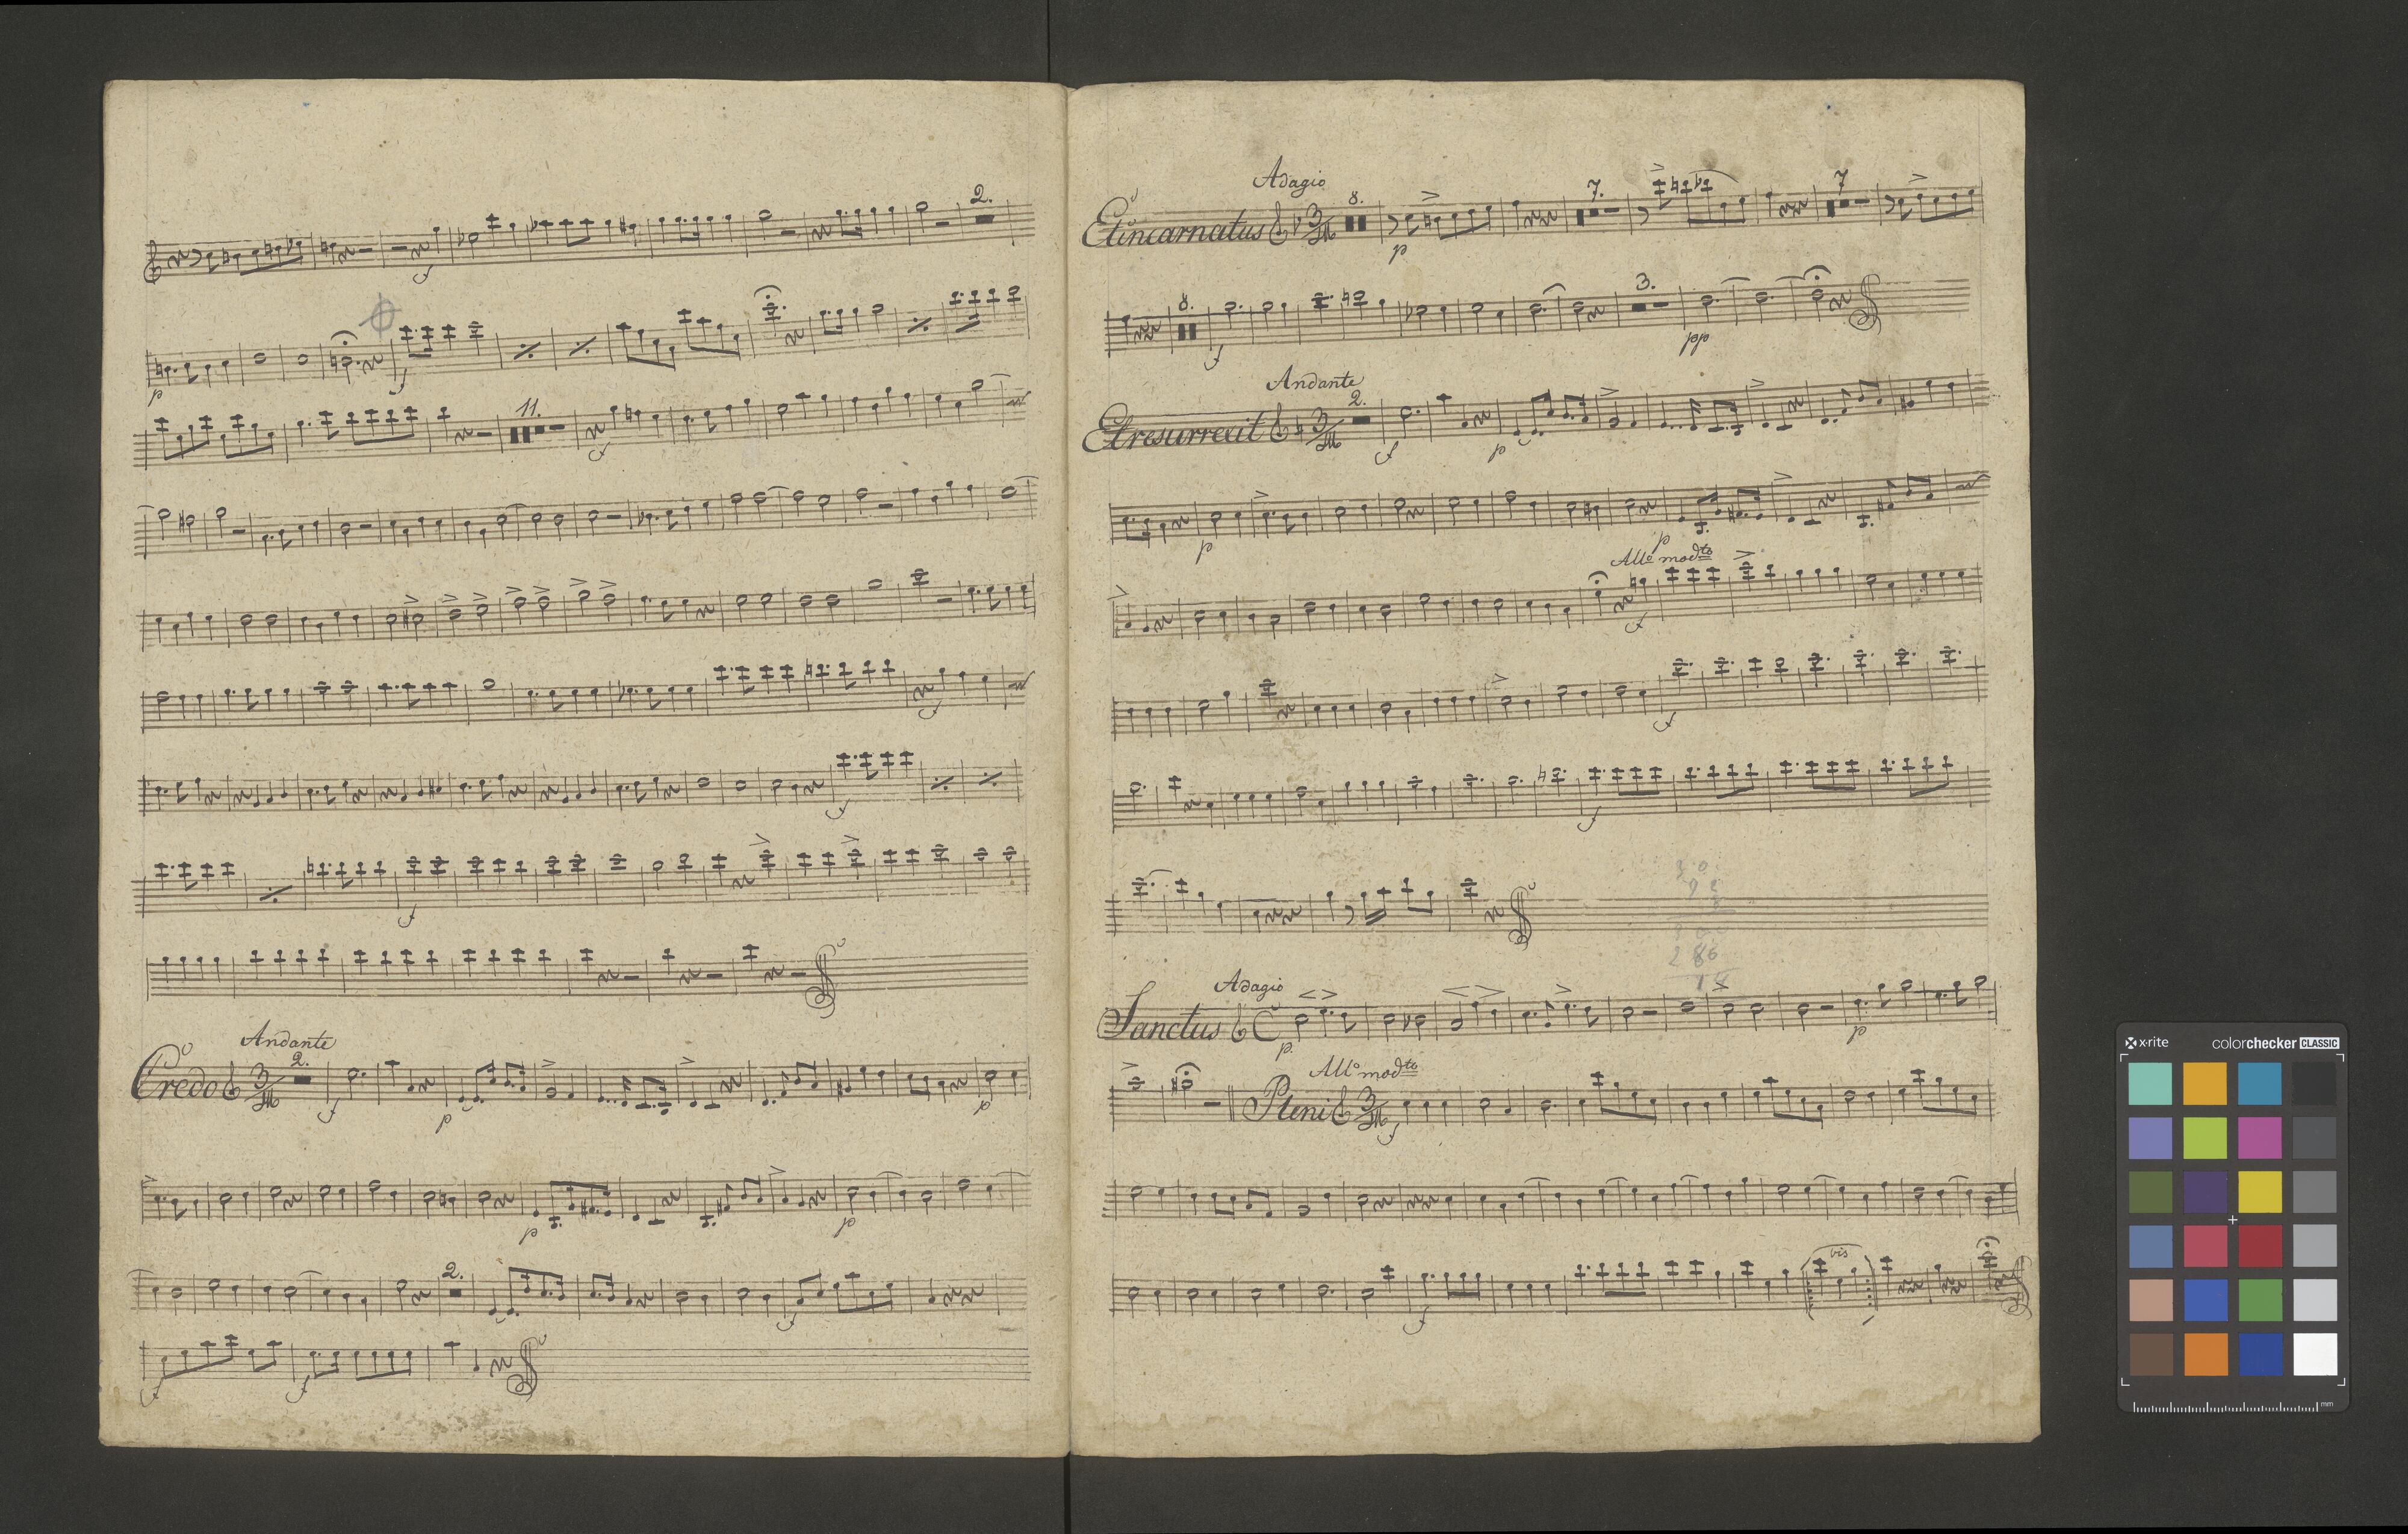 2.
f
p
f
11.
f
f
f
f
Andante
Credo 3/4 2.
f
p
p
p
p
2.
f
f
f
Adagio
Et incarnatus 3/4 8.
p
7.
7
8.
f
3.
pp
Andante
Et resurrexit 3/4 2.
f
p
p
p
All° modto
f
f
f
286
Adagio
Sanctus C
p.
p
All° modto
Pleni 3/4
f
bis
f
x-rite colorchecker CLASSIC
mm